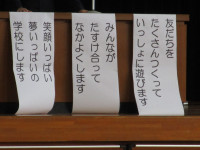 友だちを
たくさんつくって
いっしょに遊びます
みんなが
たすけ合って
なかよくします
笑顔いっぱい
夢いっぱいの
学校にします